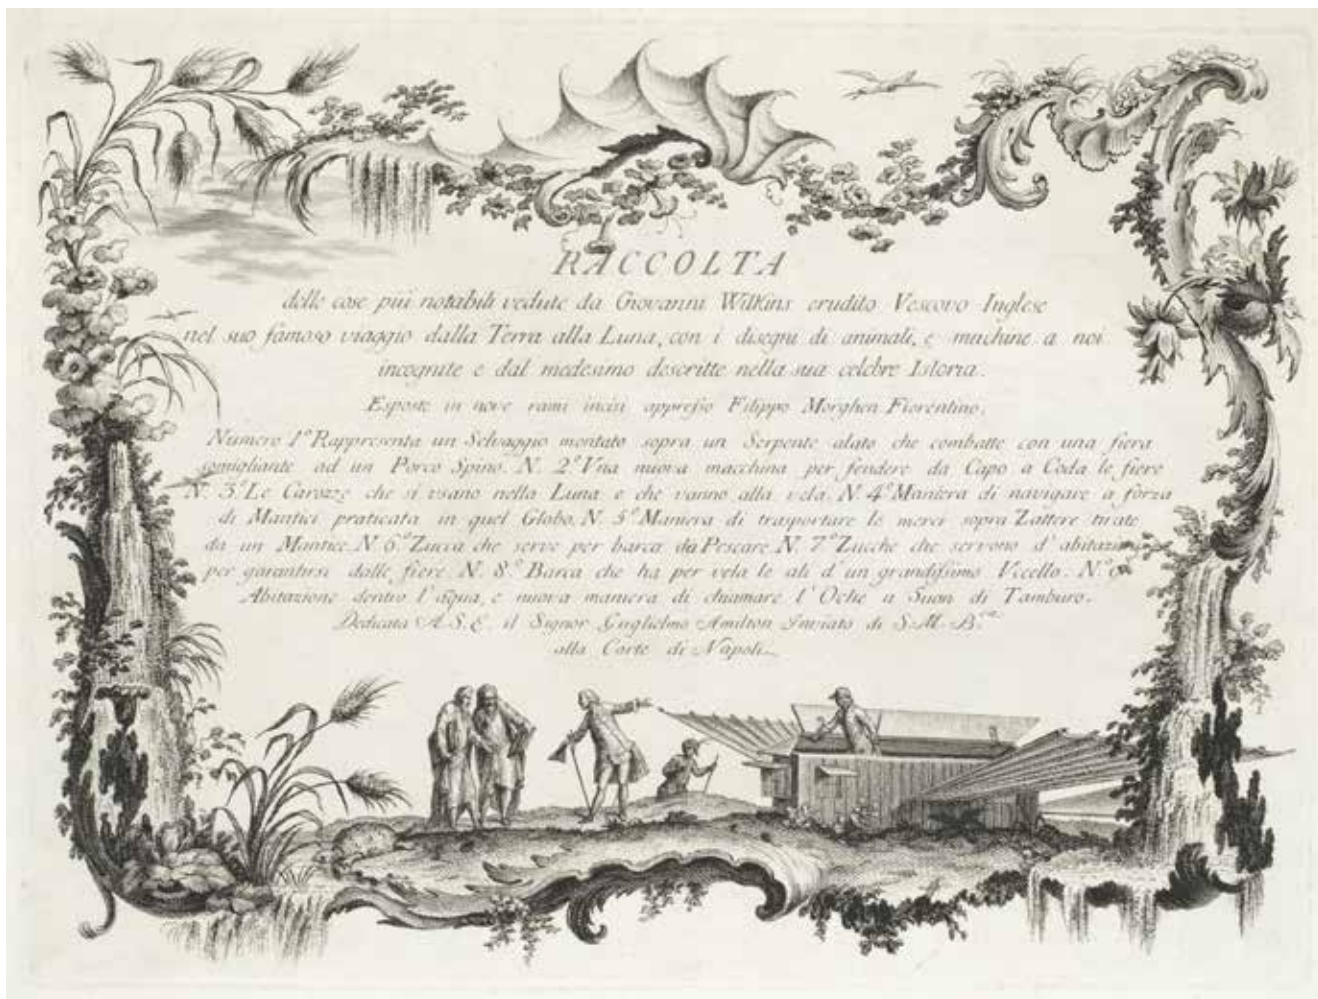 RACCOLTA
delle cose più notabili vedute da Giovanni Wilkins erudito Vescovo Inglese
nel suo famoso viaggio dalla Terra alla Luna, con i disegni di animali, e machine a noi
incognite e dal medesimo descritte nella sua celebre Istoria.
Esposte in nove rami incisi appresso Filippo Morghen Fiorentino.
Numero 1º Rappresenta un Selvaggio montato sopra un Serpente alato che combatte con una fiera
somigliante ad un Porco Spino. N. 2º Vna nuova macchina per fendere da Capo a Coda le fiere
N. 3º Le Carozze che si usano nella Luna e che vanno alla vela. N. 4º Maniera di navigare a forza
di Mantici praticata in quel Globo. N. 5º Maniera di trasportare le merci sopra Zattere tirate
da un Mantice. N. 6º Zucca che serve per barca da Pescare. N. 7º Zucche che servono d'
per garantirsi dalle fiere. N. 8º Barca che ha per vela le ali d'un grandissimo Vccello.
Abitazione dentro l'aqua, e nuova maniera di chiamare l'Oche a Suon di Tamburo.
Dedicata A.S.E. il Signor Guglielmo Amilton Inviato di S.M.B.ca
alla Corte di Napoli